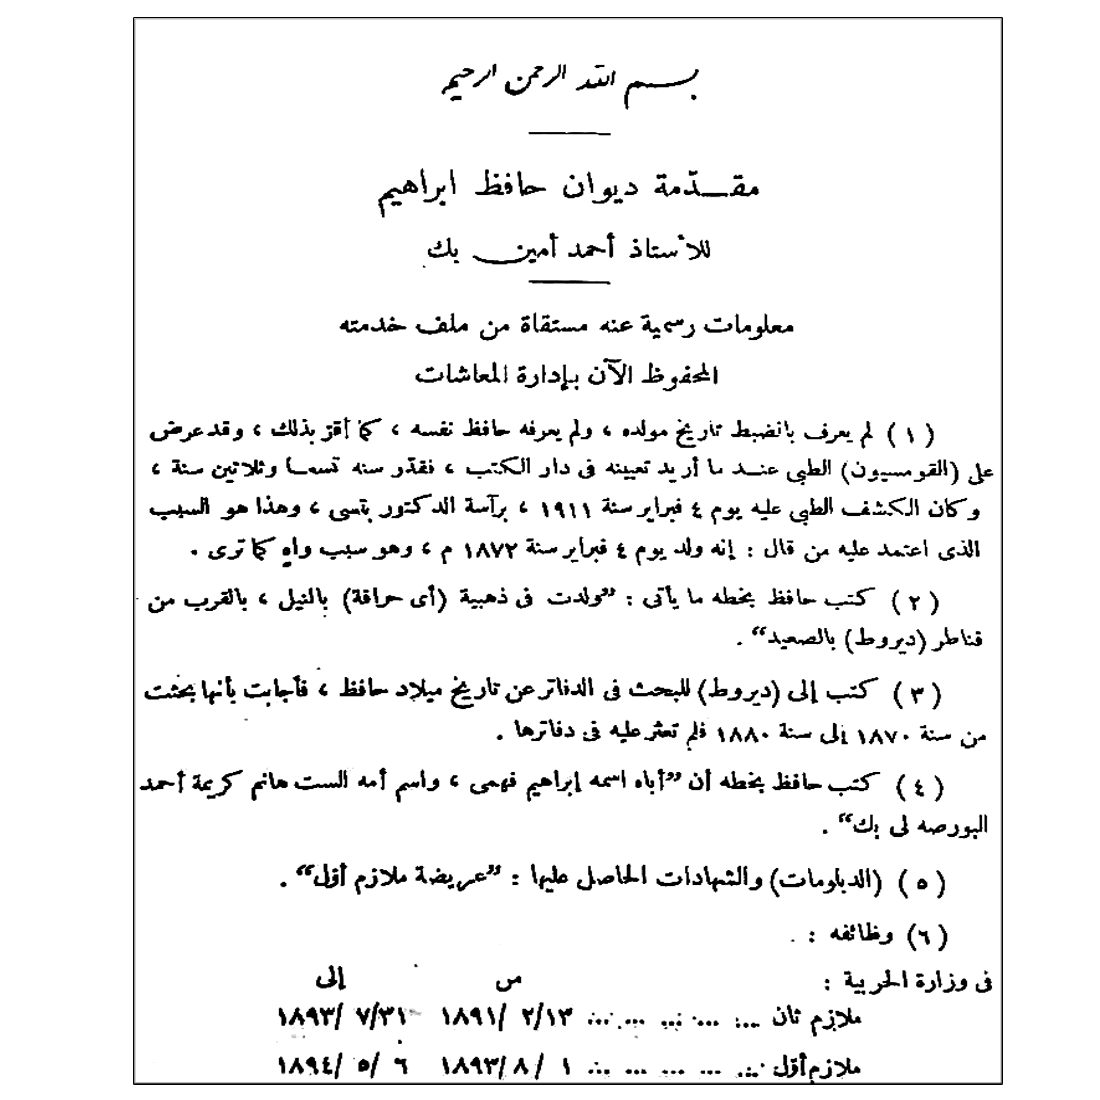 بسم الله الرحمن الرحيم
مقـدّمة ديوان حافظ ابراهيم
للأستاذ أحمد أمين بك
معلومات رسمية عنه مستقاة من ملف خدمته
المحفوظ الآن بإدارة المعاشات
(١) لم يعرف بالضبط تاريخ مولده ، ولم يعرفه حافظ نفسه ، كما أقرّ بذلك ، وقد عرض
على (القومسيون) الطبى عنـد ما أريد تعيينه فى دار الكتب ، فقدّر سنه تسعـا وثلاثين سنة ،
وكان الكشف الطبى عليه يوم ٤ فبراير سنة ١٩١١ ، برآسة الدكتور بتسى ، وهذا هو السبب
الذى اعتمد عليه من قال : إنه ولد يوم ٤ فبراير سنة ١٨٧٢ م ، وهو سبب واهٍ كما ترى .
(٢) كتب حافظ بخطه ما يأتى : ”ولدت فى ذهبية (أى حراقة) بالنيل ، بالقرب من
قناطر (ديروط) بالصعيد“ .
(٣) كتب إلى (ديروط) للبحث فى الدفاتر عن تاريخ ميلاد حافظ ، فأجابت بأنها بحثت
من سنة ١٨٧٠ إلى سنة ١٨٨٠ فلم تعثر عليه فى دفاترها .
(٤) كتب حافظ بخطه أن ”أباه اسمه إبراهيم فهمى ، واسم أمه الست هانم كريمة أحمد
البورصه لى بك“ .
(٥) (الدبلومات) والشهادات الحاصل عليها : ”عريضة ملازم أوّل“ .
(٦) وظائفه :
فى وزارة الحربية : من إلى
ملازم ثان ... ... ... ... ... ١٨٩١/ ٢/١٣ ١٨٩٣/ ٧/٣١
ملازم أوّل ... ... ... ... ... ١ /١٨٩٣/٨ ٦ /٥ /١٨٩٤